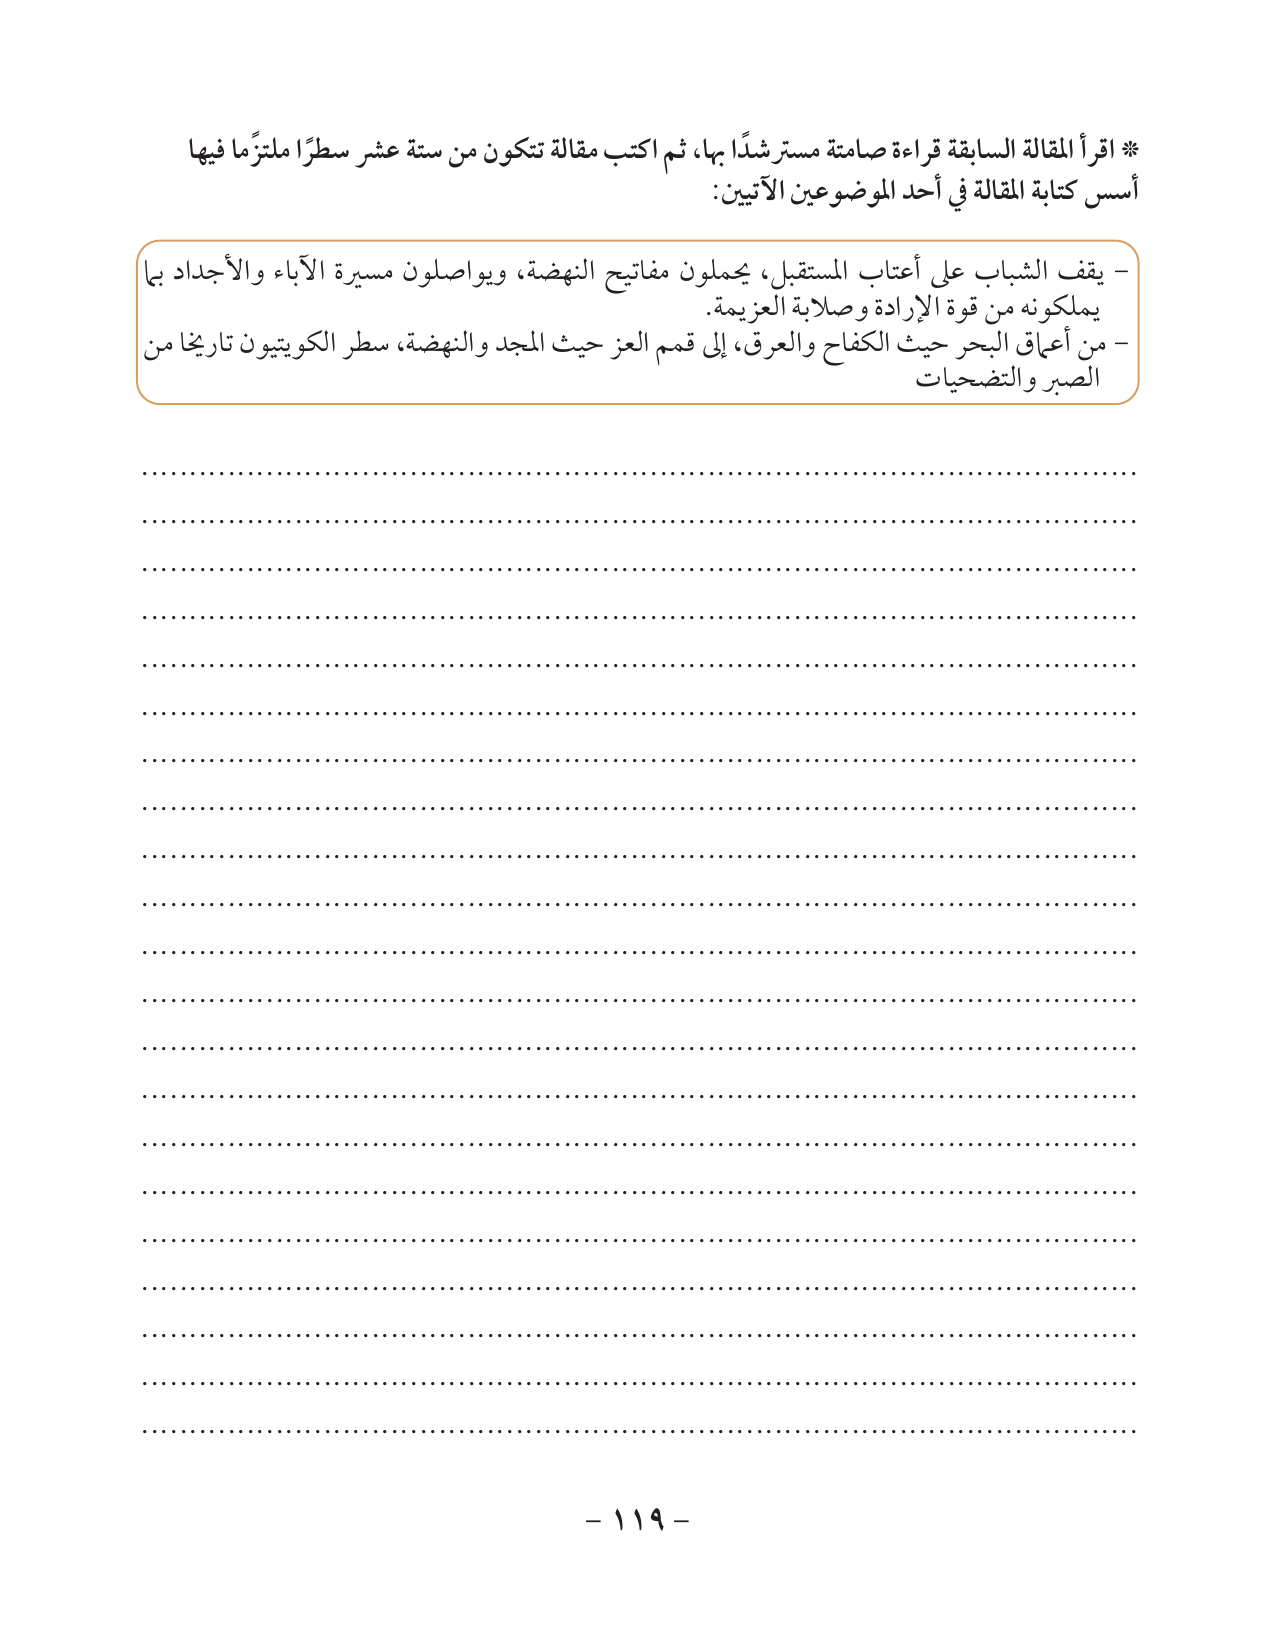 * اقرأ المقالة السابقة قراءة صامتة مسترشدًا بها، ثم اكتب مقالة تتكون من ستة عشر سطرًا ملتزمًا فيها
أسس كتابة المقالة في أحد الموضوعين الآتيين:
– يقف الشباب على أعتاب المستقبل، يحملون مفاتيح النهضة، ويواصلون مسيرة الآباء والأجداد بما
يملكونه من قوة الإرادة وصلابة العزيمة.
– من أعماق البحر حيث الكفاح والعرق، إلى قمم العز حيث المجد والنهضة، سطر الكويتيون تاريخا من
الصبر والتضحيات
– ١١٩ –